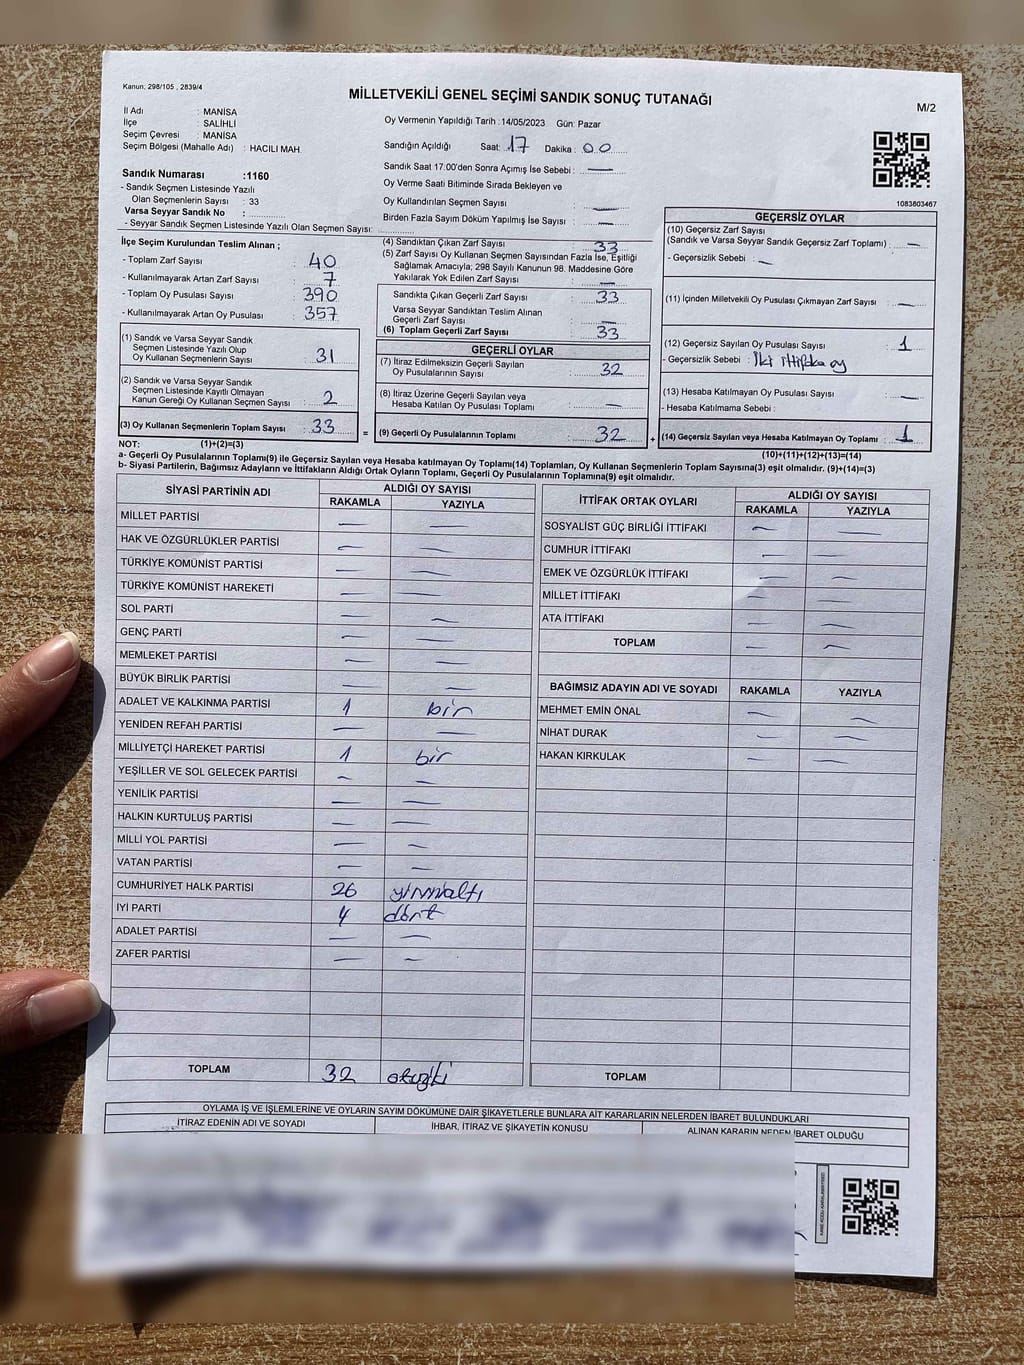 Kanun: 298/105 , 2839/4
MİLLETVEKİLİ GENEL SEÇİMİ SANDIK SONUÇ TUTANAĞI
M/2
İl Adı : MANİSA
İlçe : SALİHLİ
Seçim Çevresi : MANİSA
Seçim Bölgesi (Mahalle Adı) : HACILI MAH.
Sandık Numarası :1160
- Sandık Seçmen Listesinde Yazılı
Olan Seçmenlerin Sayısı : 33
Varsa Seyyar Sandık No :
- Seyyar Sandık Seçmen Listesinde Yazılı Olan Seçmen Sayısı:
Oy Vermenin Yapıldığı Tarih : 14/05/2023 Gün: Pazar
Sandığın Açıldığı Saat: 17 Dakika : 00
Sandık Saat 17:00'den Sonra Açımış İse Sebebi : —
Oy Verme Saati Bitiminde Sırada Bekleyen ve
Oy Kullandırılan Seçmen Sayısı : —
Birden Fazla Sayım Döküm Yapılmış İse Sayısı : —
1083803467
İlçe Seçim Kurulundan Teslim Alınan ;
- Toplam Zarf Sayısı : 40
- Kullanılmayarak Artan Zarf Sayısı : 7
- Toplam Oy Pusulası Sayısı : 390
- Kullanılmayarak Artan Oy Pusulası : 357
(1) Sandık ve Varsa Seyyar Sandık
Seçmen Listesinde Yazılı Olup
Oy Kullanan Seçmenlerin Sayısı : 31
(2) Sandık ve Varsa Seyyar Sandık
Seçmen Listesinde Kayıtlı Olmayan
Kanun Gereği Oy Kullanan Seçmen Sayısı : 2
(3) Oy Kullanan Seçmenlerin Toplam Sayısı : 33
(4) Sandıktan Çıkan Zarf Sayısı : 33
(5) Zarf Sayısı Oy Kullanan Seçmen Sayısından Fazla İse, Eşitliği
Sağlamak Amacıyla; 298 Sayılı Kanunun 98. Maddesine Göre
Yakılarak Yok Edilen Zarf Sayısı : —
Sandıkta Çıkan Geçerli Zarf Sayısı : 33
Varsa Seyyar Sandıktan Teslim Alınan
Geçerli Zarf Sayısı : —
(6) Toplam Geçerli Zarf Sayısı : 33
GEÇERLİ OYLAR
(7) İtiraz Edilmeksizin Geçerli Sayılan
Oy Pusulalarının Sayısı : 32
(8) İtiraz Üzerine Geçerli Sayılan veya
Hesaba Katılan Oy Pusulası Toplamı : —
= (9) Geçerli Oy Pusulalarının Toplamı : 32
GEÇERSİZ OYLAR
(10) Geçersiz Zarf Sayısı
(Sandık ve Varsa Seyyar Sandık Geçersiz Zarf Toplamı) : —
- Geçersizlik Sebebi : —
(11) İçinden Milletvekili Oy Pusulası Çıkmayan Zarf Sayısı : —
(12) Geçersiz Sayılan Oy Pusulası Sayısı : 1
- Geçersizlik Sebebi : İki ittifaka oy
(13) Hesaba Katılmayan Oy Pusulası Sayısı : —
- Hesaba Katılmama Sebebi :
+ (14) Geçersiz Sayılan veya Hesaba Katılmayan Oy Toplamı : 1
NOT: (1)+(2)=(3)
(10)+(11)+(12)+(13)=(14)
a- Geçerli Oy Pusulalarının Toplamı(9) ile Geçersiz Sayılan veya Hesaba katılmayan Oy Toplamı(14) Toplamları, Oy Kullanan Seçmenlerin Toplam Sayısına(3) eşit olmalıdır. (9)+(14)=(3)
b- Siyasi Partilerin, Bağımsız Adayların ve İttifakların Aldığı Ortak Oyların Toplamı, Geçerli Oy Pusulalarının Toplamına(9) eşit olmalıdır.
SİYASİ PARTİNİN ADI ALDIĞI OY SAYISI
RAKAMLA YAZIYLA
MİLLET PARTİSİ — —
HAK VE ÖZGÜRLÜKLER PARTİSİ — —
TÜRKİYE KOMÜNİST PARTİSİ — —
TÜRKİYE KOMÜNİST HAREKETİ — —
SOL PARTİ — —
GENÇ PARTİ — —
MEMLEKET PARTİSİ — —
BÜYÜK BİRLİK PARTİSİ — —
ADALET VE KALKINMA PARTİSİ 1 bir
YENİDEN REFAH PARTİSİ — —
MİLLİYETÇİ HAREKET PARTİSİ 1 bir
YEŞİLLER VE SOL GELECEK PARTİSİ — —
YENİLİK PARTİSİ — —
HALKIN KURTULUŞ PARTİSİ — —
MİLLİ YOL PARTİSİ — —
VATAN PARTİSİ — —
CUMHURİYET HALK PARTİSİ 26 yirmialtı
İYİ PARTİ 4 dört
ADALET PARTİSİ — —
ZAFER PARTİSİ — —
TOPLAM 32 otuziki
İTTİFAK ORTAK OYLARI ALDIĞI OY SAYISI
RAKAMLA YAZIYLA
SOSYALİST GÜÇ BİRLİĞİ İTTİFAKI — —
CUMHUR İTTİFAKI — —
EMEK VE ÖZGÜRLÜK İTTİFAKI — —
MİLLET İTTİFAKI — —
ATA İTTİFAKI — —
TOPLAM — —
BAĞIMSIZ ADAYIN ADI VE SOYADI RAKAMLA YAZIYLA
MEHMET EMİN ÖNAL — —
NİHAT DURAK — —
HAKAN KIRKULAK — —
TOPLAM
OYLAMA İŞ VE İŞLEMLERİNE VE OYLARIN SAYIM DÖKÜMÜNE DAİR ŞİKAYETLERLE BUNLARA AİT KARARLARIN NELERDEN İBARET BULUNDUKLARI
İTİRAZ EDENİN ADI VE SOYADI İHBAR, İTİRAZ VE ŞİKAYETİN KONUSU ALINAN KARARIN NEDEN İBARET OLDUĞU